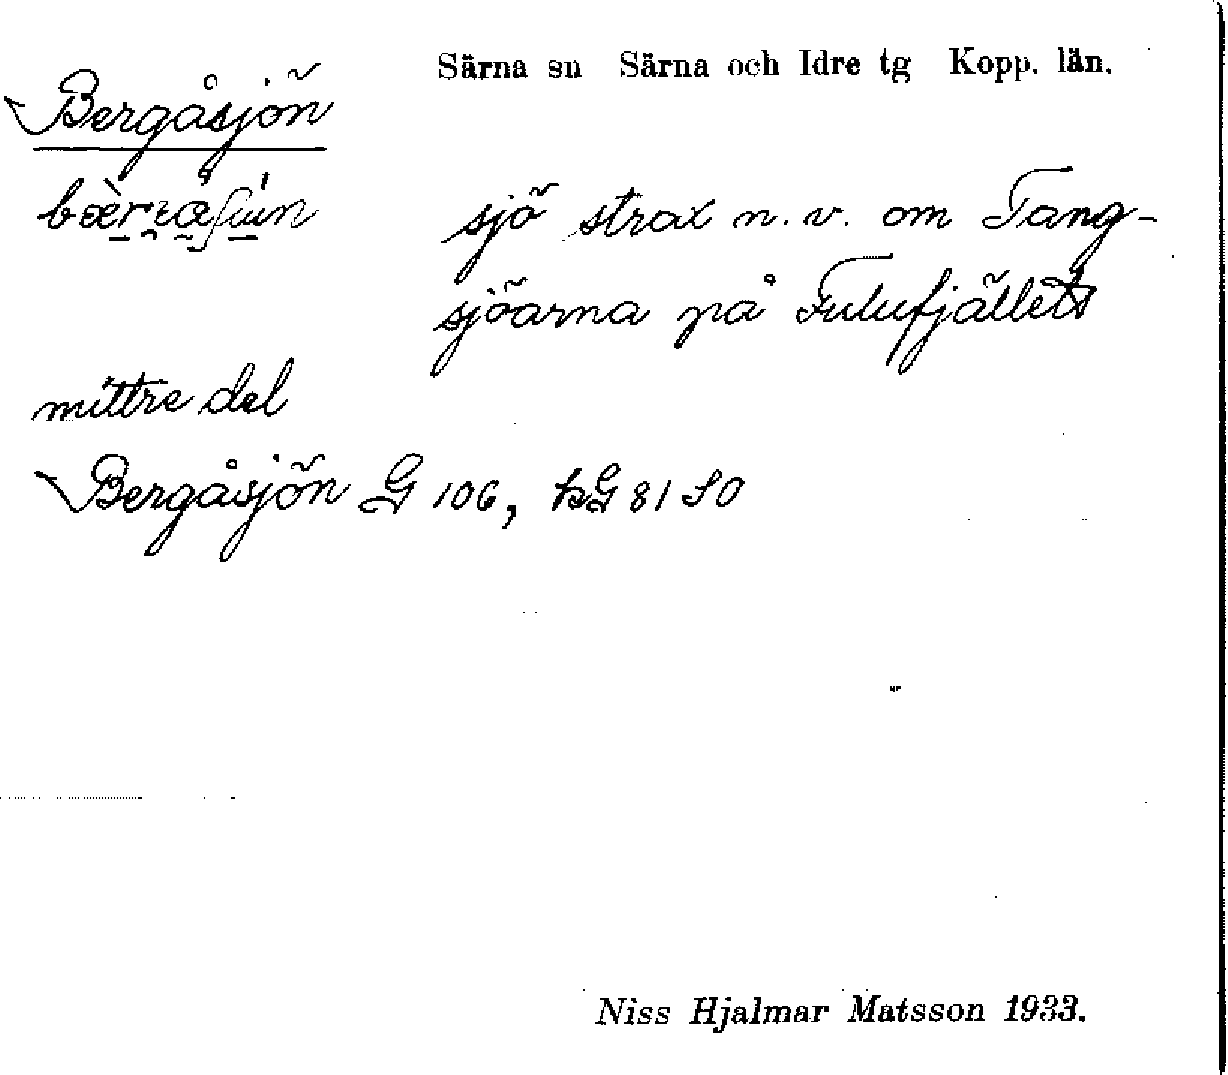 Särna sn Särna och Idre tg Kopp. län.
Bergåsjön
sjö strax n.v. om Tang-
sjöarna på Fulufjällets
mittre del
Bergåsjön G 106, hG 81 SO
Niss Hjalmar Matsson 1933.